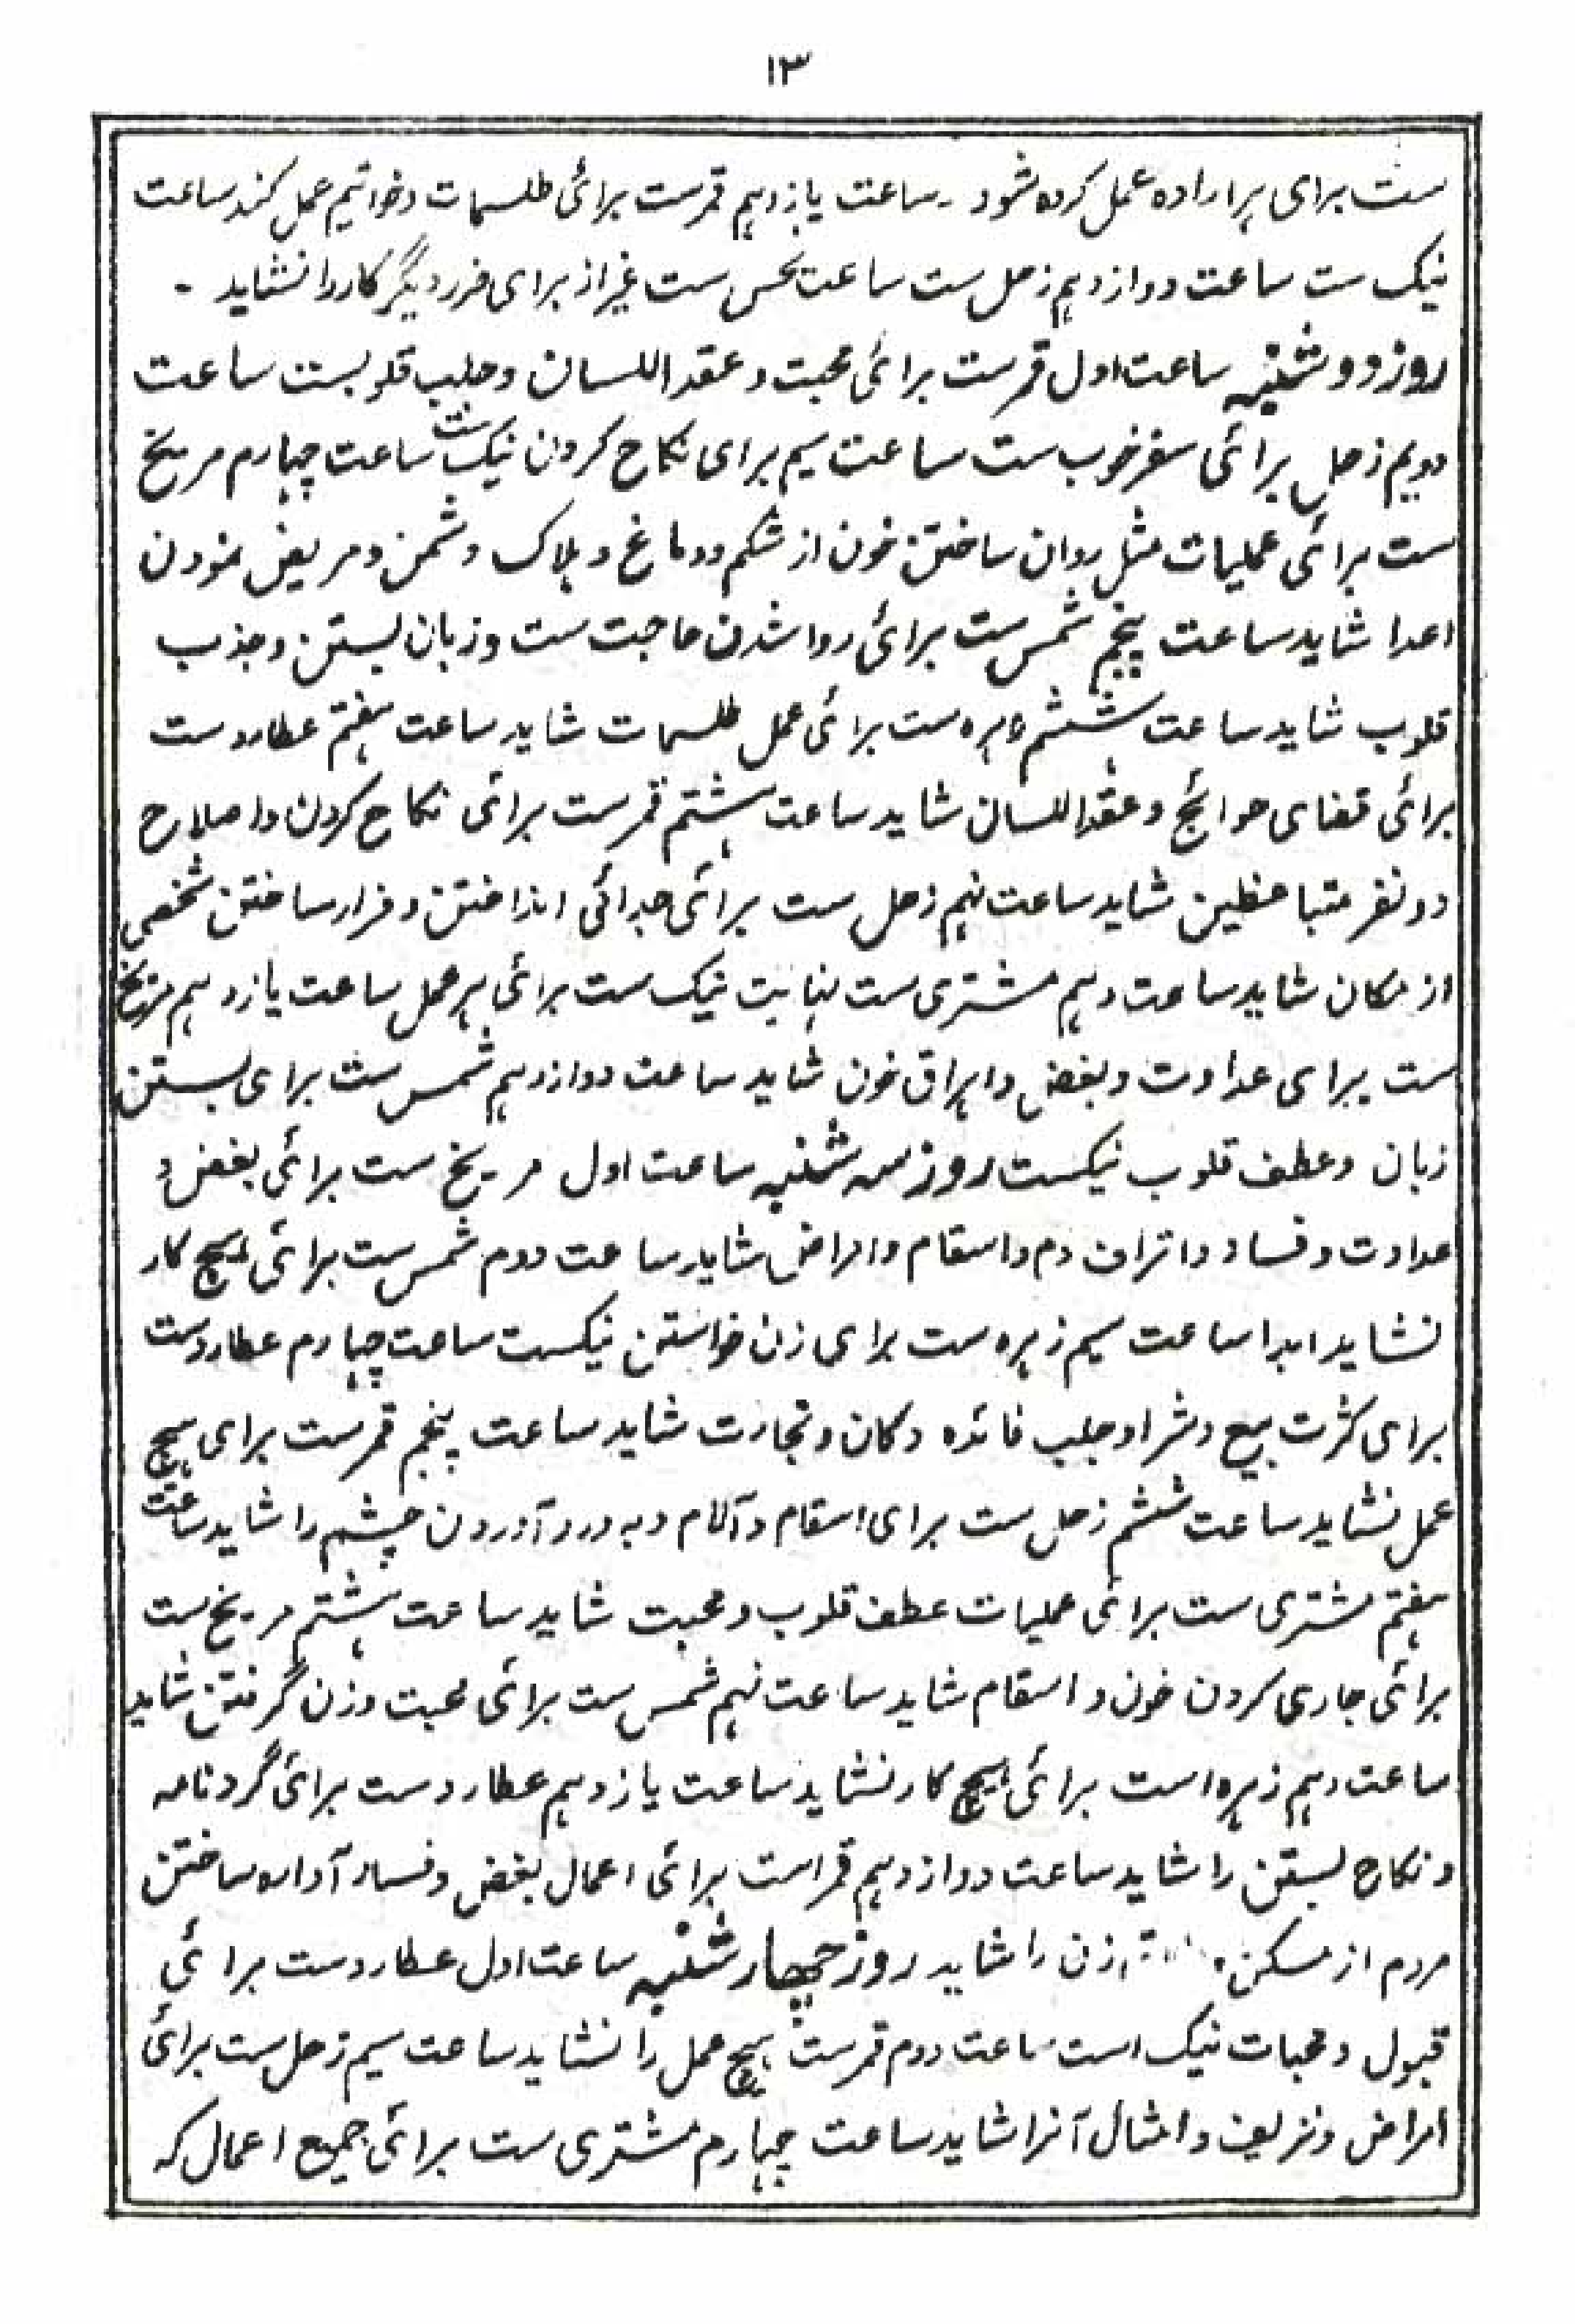 ۱۳
ست برای هر اراده عمل کرده شود ۔ ساعت یازدہم قمرست برائی طلسمات وخواتیم عمل کند ساعت
نیک ست ساعت دوازدہم زحل ست ساعت نحس ست غیر از برای ضرر دیگر کار را نشاید ۔
روز دوشنبه ساعت اول قمرست برائی محبت و عقد اللسان و جلب قلوبست ساعت
دویم زحل برائی سفر خوب ست ساعت سیم برای نکاح کردن نیک ست ساعت چهارم مریخ
ست برائی عملیات مثل روان ساختن خون از شکم و دماغ و ہلاک دشمن و مریض نمودن
اعدا شاید ساعت پنجم شمس ست برائی روا شدن حاجت ست و زبان بستن و جذب
قلوب شاید ساعت ششم زہرہ ست برائی عمل طلسمات شاید ساعت ہفتم عطاردست
برائی قضای حوائج و عقد اللسان شاید ساعت ہشتم قمرست برائی نکاح کردن واصلاح
دو نفر متباغضین شاید ساعت نہم زحل ست برائی جدائی انداختن و فرار ساختن شخصی
از مکان شاید ساعت دہم مشتری ست نہایت نیک ست برائی ہر عمل ساعت یازدہم مریخ
ست برای عداوت و بغض و اہراق خون شاید ساعت دوازدہم شمس ست برای بستن
زبان و عطف قلوب نیکست روز سه شنبه ساعت اول مریخ ست برائی بغض و
عداوت و فساد و انزاف دم و اسقام و امراض شاید ساعت دوم شمس ست برائی ہیچ کار
نشاید ابدا ساعت سیم زہرہ ست برای زن خواستن نیکست ساعت چہارم عطاردست
برای کثرت بیع و شرا و جلب فائدہ دکان و تجارت شاید ساعت پنجم قمرست برای ہیچ
عمل نشاید ساعت ششم زحل ست برای اسقام و آلام و به درد آوردن چشم را شاید ساعت
ہفتم مشتری ست برائی عملیات عطف قلوب و محبت شاید ساعت ہشتم مریخ ست
برائی جاری کردن خون و اسقام شاید ساعت نہم شمس ست برائی محبت و زن گرفتن شاید
ساعت دہم زہرہ است برائی ہیچ کار نشاید ساعت یازدہم عطاردست برائی گردنامه
و نکاح بستن را شاید ساعت دوازدہم قمر است برائی اعمال بغض و فساد آوارہ ساختن
مردم از مسکن و زن را شاید روز چہار شنبه ساعت اول عطاردست برائی
قبول و محبات نیک است ساعت دوم قمرست ہیچ عمل را نشاید ساعت سیم زحل ست برائی
امراض و نزیف و امثال آنرا شاید ساعت چہارم مشتری ست برائی جمیع اعمال که